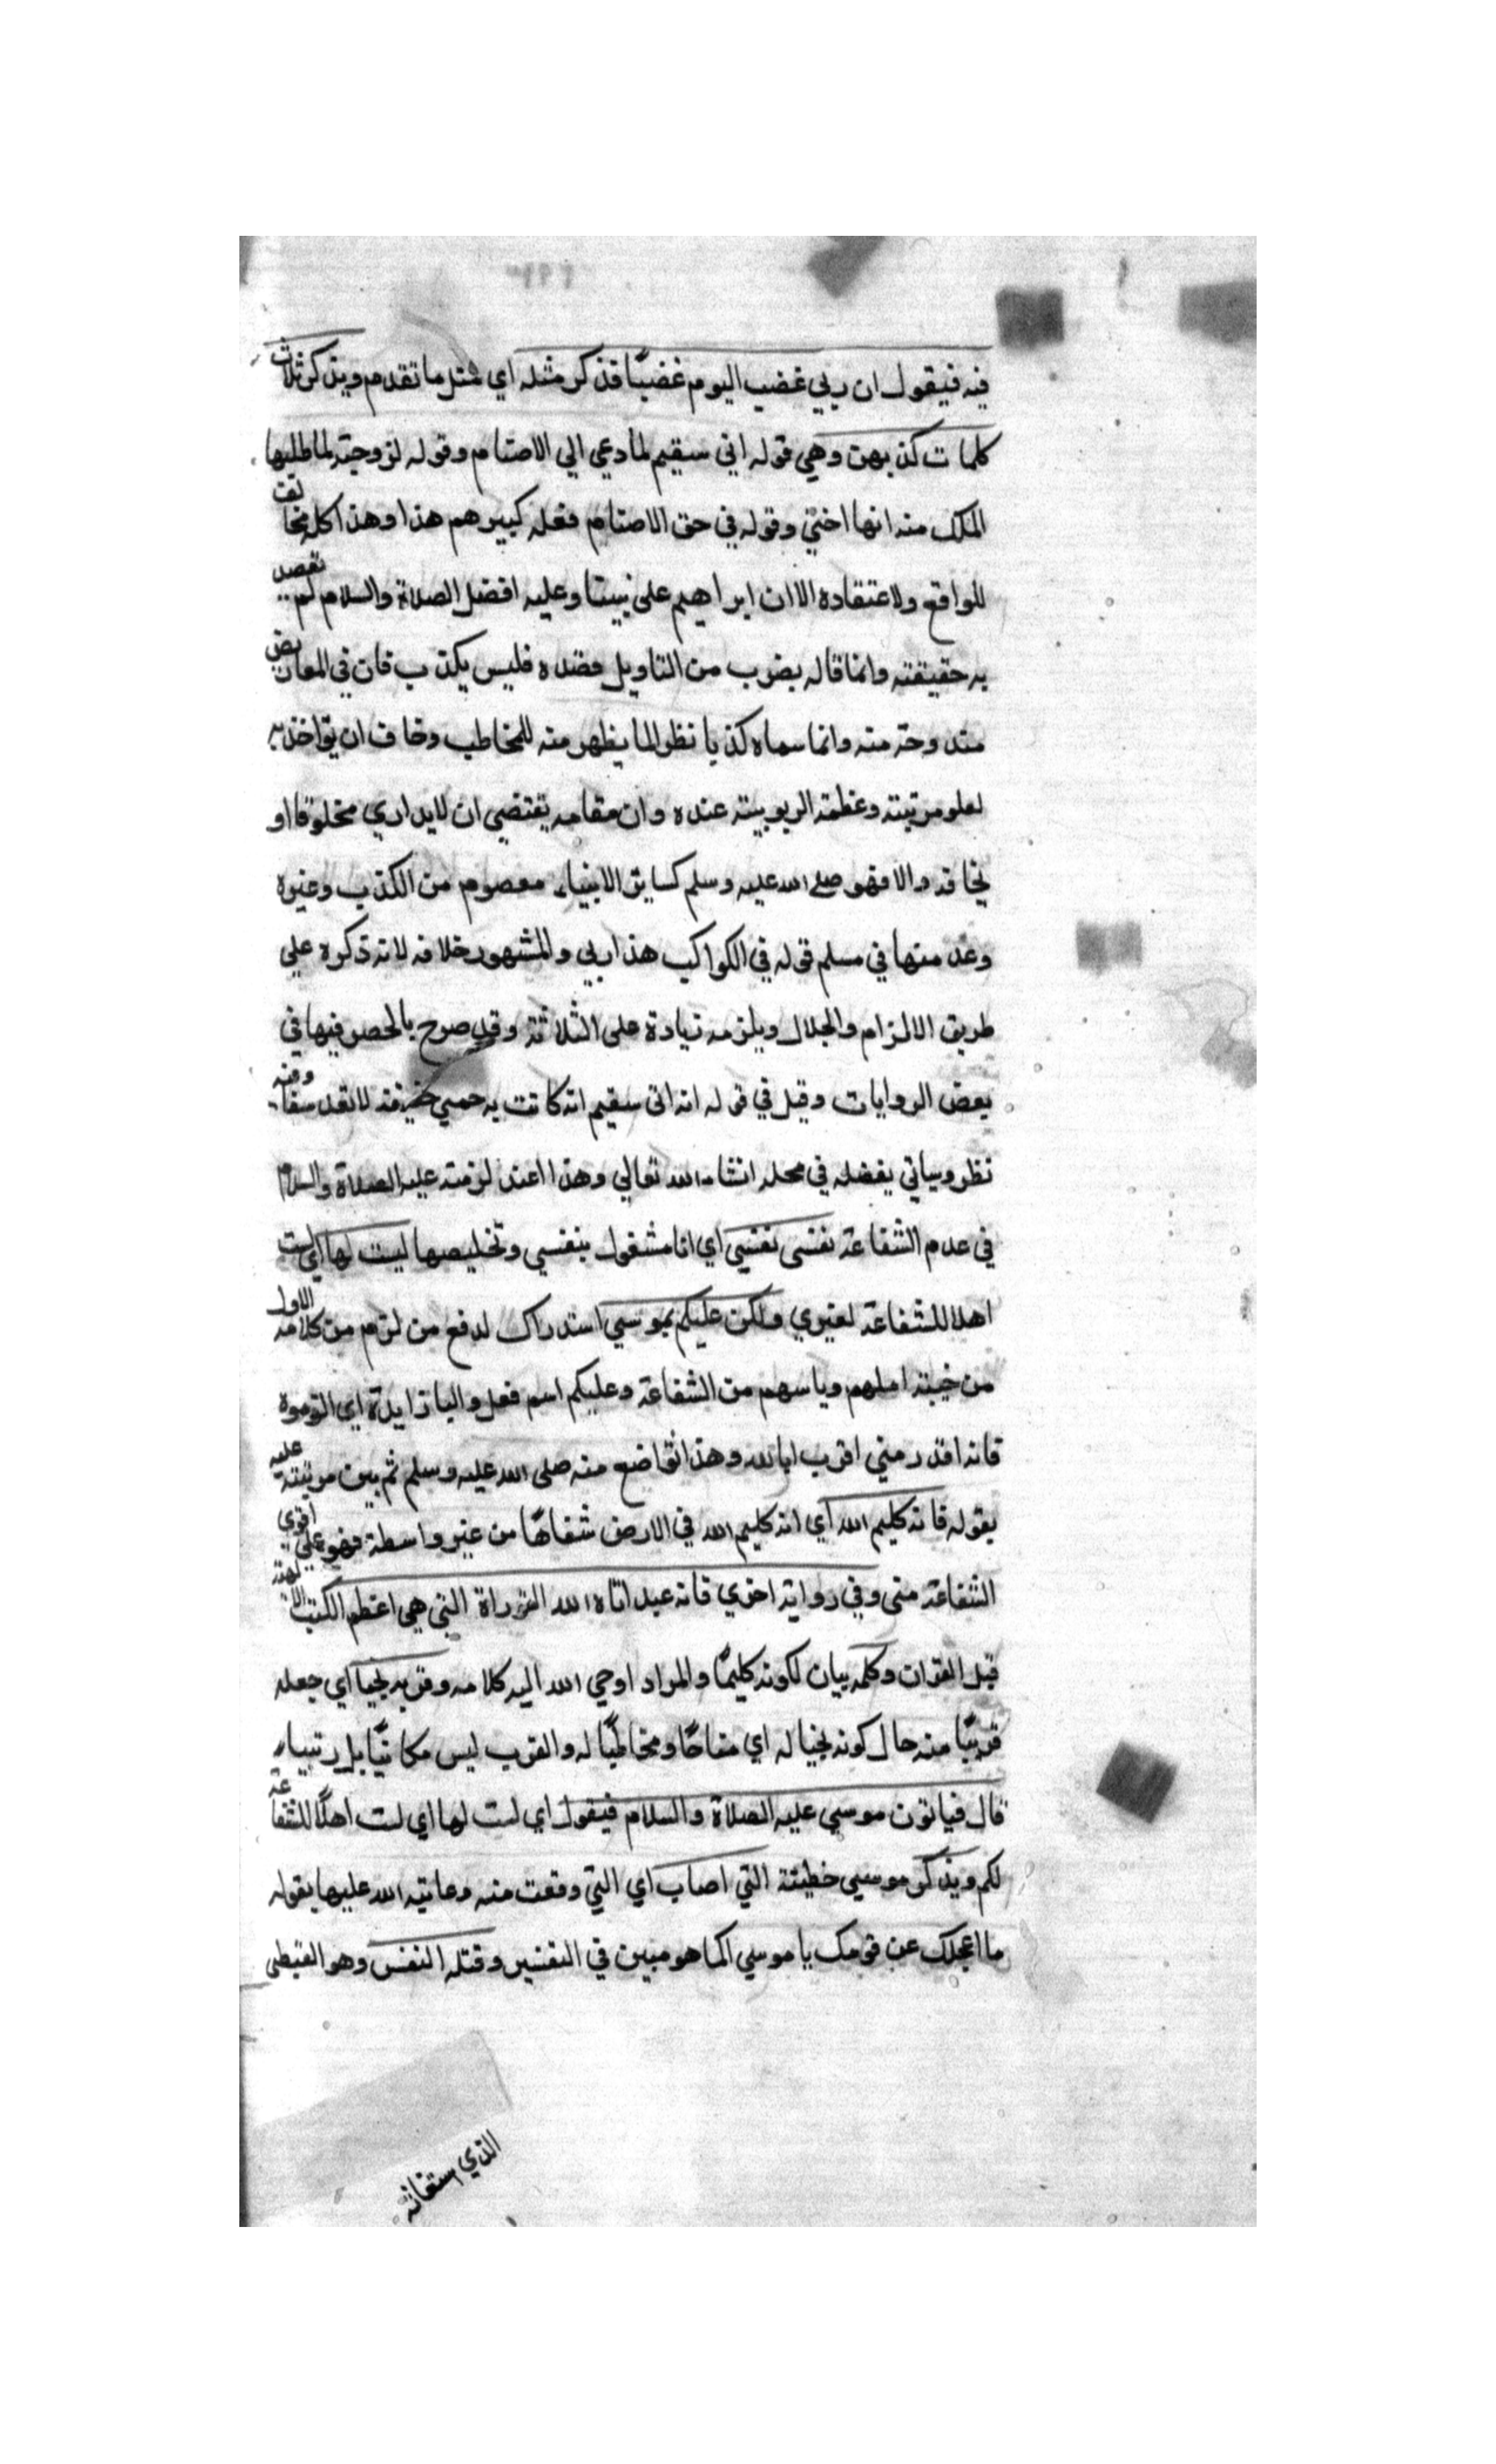 فيه فيقول ان ربي غضب اليوم غضبًا فذكر مثله اي مثل ما تقدم ويذكر ثلاث
كلمات كذبهن وهي قوله اني سقيم لما دعي الي الاصنام وقوله لزوجته لما طلبها
الملك منه انها اختي وقوله في حق الاصنام فعله كبيرهم هذا وهذا كله مخالف
للواقع ولاعتقاده الا ان ابراهيم على نبينا وعليه افضل الصلاة والسلام لم يقصد
به حقيقته وانما قاله بضرب من التاويل قصده فليس بكذب فان في المعاريض
مندوحة منه وانما سماه كذبا نظرا لما يظهر منه للمخاطب وخاف ان يؤاخذ به
لعلو مرتبته وعظمة الربوبية عنده وان مقامه يقتضي ان لا يداري مخلوقا او
يخافه والا فهو صلى الله عليه وسلم كساير الانبياء معصوم من الكذب وغيره
وعد منها في مسلم قوله في الكواكب هذا ربي والمشهور خلافه لانه ذكره علي
طريق الالزام والجدال ويلزمه زيادة على الثلاثة وقد صرح بالحصر فيها في
بعض الروايات وقيل في قوله انه اني سقيم انه كانت به حمي خفيفة لا تعد سقما وفيه
نظر وسياتي بفضله في محله انشاء الله تعالي وهذا اعتذار منه عليه الصلاة والسلام
في عدم الشفاعة نفسى نفسي اي انا مشغول بنفسي وتخليصها لست لها اي لست
اهلا للشفاعة لغيري ولكن عليكم بموسي استدراك لدفع من لزم من كلامه الاول
من خيبة املهم وياسهم من الشفاعة وعليكم اسم فعل والبا زايدة اي الزموه
فانه اقدر مني اقرب الى الله وهذا تواضع منه صلى الله عليه وسلم ثم بين مرتبته عليه
بقوله فانه كليم الله اي انه كليم الله في الارض شفاهًا من غير واسطة فهو اقوي على
الشفاعة منى وفي رواية اخري فانه عبد اتاه الله التوراة التي هي اعظم الكتب الالهية
قبل القران وكلمه بيان لكونه كليمًا والمراد اوحي الله اليه كلامه وقربه نجيا اي جعله
قريبًا منه حال كونه نجيا له اي مناجًا ومخاطبًا له والقرب ليس مكانيًا بل رتبيا
قال فياتون موسي عليه الصلاة والسلام فيقول اي لست لها اي لست اهلًا للشفاعة
لكم ويذكر موسي خطيئته التي اصاب اي التي وقعت منه وعاتبه الله عليها بقوله
ما اعجلك عن قومك يا موسي كما هو مبين في التفسير وقتله النفس وهو القبطى
الذي استغاثه